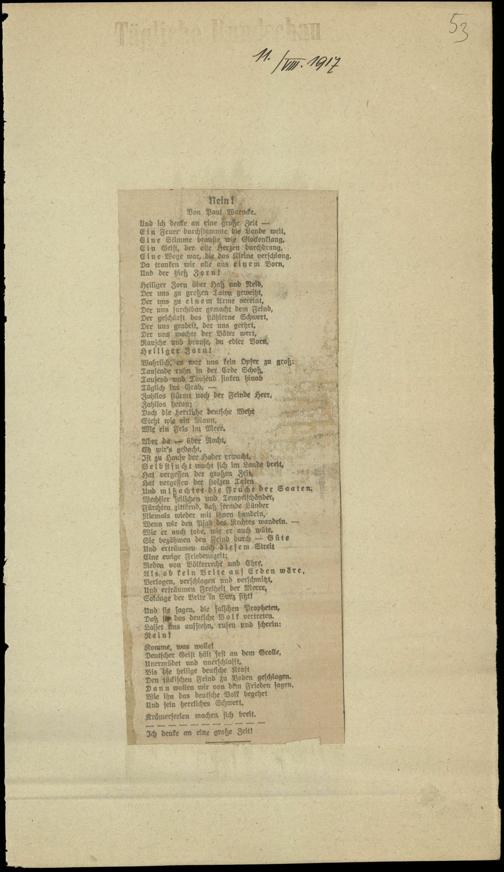 Tägliche Rundschau
53
11./VIII. 1917
Nein!
Von Paul Warncke.
Und ich denke an eine große Zeit —
Ein Feuer durchflammte die Lande weit,
Eine Stimme brauste wie Glockenklang,
Ein Geist, der alle Herzen durchdrang,
Eine Woge war, die das Kleine verschlang,
Da tranken wir alle aus einem Born,
Und der hieß Zorn!
Heiliger Zorn über Haß und Neid,
Der uns zu großen Taten geweiht,
Der uns zu einem Arme vereint,
Der uns furchtbar gemacht dem Feind,
Der geschärft das stählerne Schwert,
Der uns geadelt, der uns geehrt,
Der uns macht der Väter wert,
Rausche und brause, du edler Born,
Heiliger Zorn!
Wahrlich, es war uns kein Opfer zu groß:
Tausende ruhn in der Erde Schoß,
Tausend und Tausend sinken hinab
Täglich ins Grab, —
Zahllos stürmt noch der Feinde Heer,
Zahllos heran;
Doch die herrliche deutsche Wehr
Steht wie ein Mann,
Wie ein Fels im Meer.
Aber da — über Nacht,
Eh wir's gedacht,
Ist zu Hause der Hader erwacht,
Selbstsucht macht sich im Lande breit,
Hat vergessen der großen Zeit,
Hat vergessen der stolzen Taten
Und mißachtet die Frucht der Saaten,
Wechsler feilschen und Tempelschänder,
Fürchten zitternd, daß fremde Länder
Niemals wieder mit ihnen handeln,
Wenn wir den Pfad des Rechtes wandeln. —
Wie er auch tobe, wie er auch wüte,
Sie bezähmen den Feind durch — Güte
Und erträumen nach diesem Streit
Eine ewige Friedenszeit;
Reden von Völkerrecht und Ehre,
Als ob kein Brite auf Erden wäre,
Verlogen, verschlagen und verschmitzt,
Und erträumen Freiheit der Meere,
Solange der Brite in Suez sitzt!
Und sie sagen, die falschen Propheten,
Daß sie das deutsche Volk vertreten.
Lasset uns aufstehn, rufen und schrein:
Nein!
Komme, was wolle!
Deutscher Geist hält fest an dem Grolle,
Unermüdet und unerschlafft,
Bis die heilige deutsche Kraft
Den tückischen Feind zu Boden geschlagen.
Dann wollen wir von dem Frieden sagen,
Wie ihn das deutsche Volk begehrt
Und sein herrliches Schwert.
Krämerseelen machen sich breit.
— — — — — — — — — — — —
Ich denke an eine große Zeit!